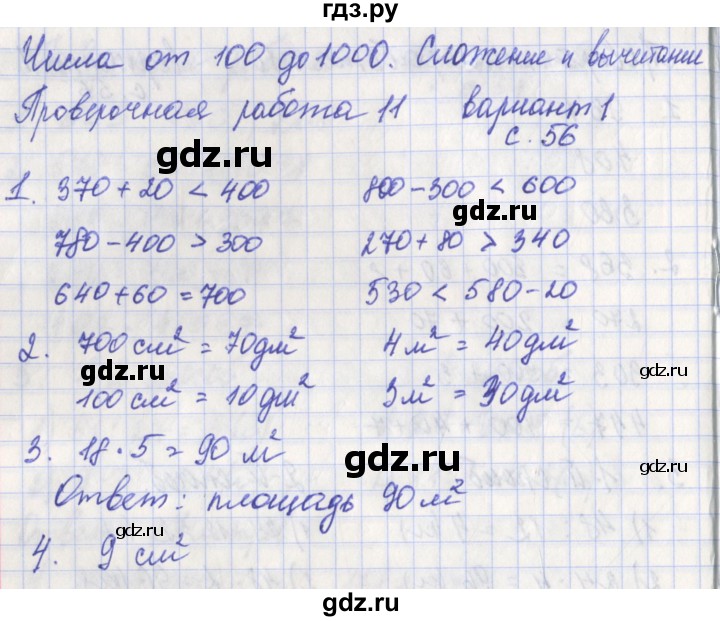 гдз.ру
Числа от 100 до 1000. Сложение и вычитание
Проверочная работа 11 вариант 1
с. 56
gdz.ru
1. 370 + 20 < 400 800 - 300 < 600
gdz.ru
780 - 400 > 300 270 + 80 > 340
640 + 60 = 700 530 < 580 - 20
2. 700 см² = 70 дм² 4 м² = 40 дм²
gdz.ru gdz.ru
100 см² = 10 дм² 3 м² = 30 дм²
3. 18 · 5 = 90 м²
gdz.ru gdz.ru
Ответ: площадь 90 м²
gdz.ru
4. 9 см²
gdz.ru
gdz.ru